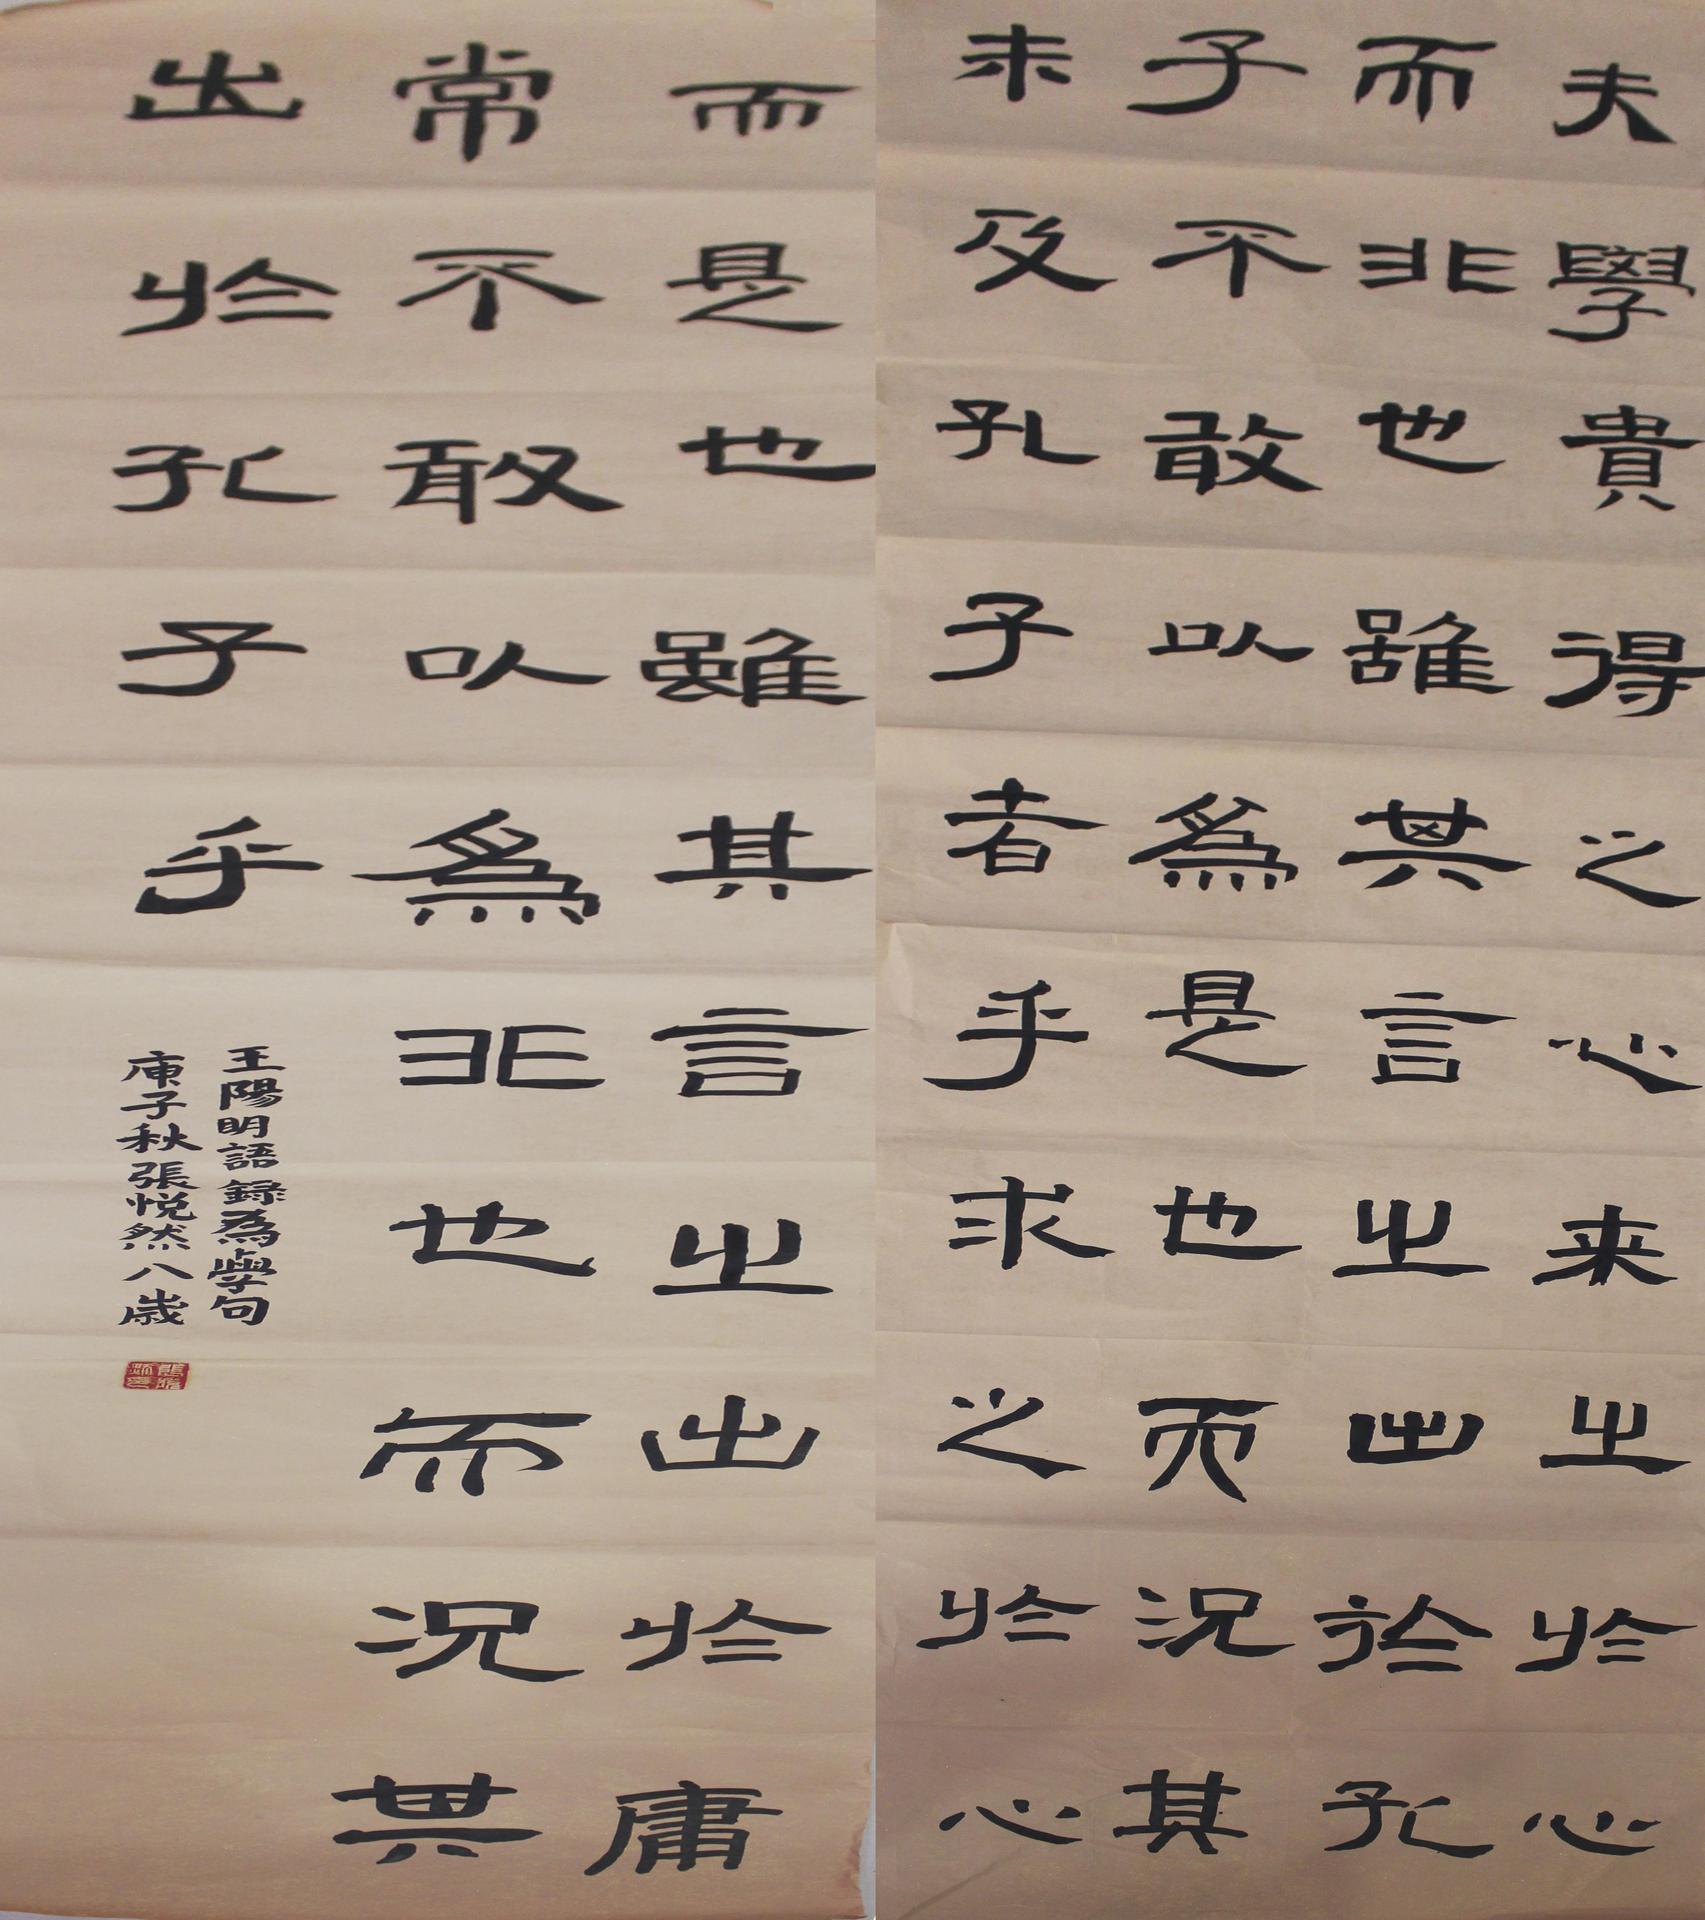 夫學貴得之心来之於心
而非也雖其言之出於孔
子不敢以為是也而況其
未及孔子者乎求之於心
而是也雖其言之出於庸
常不敢以為非也而況其
出於孔子乎
王陽明語録為學句
庚子秋張悦然八歲